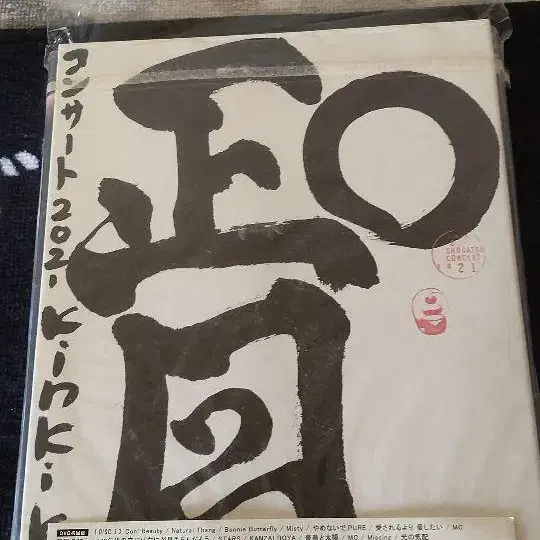 ○正月
コンサート2021 KinKi K
SHOGATSU
CONCERT
2021
DVD初回盤
[DISC 1] Cool Beauty / Natural Thang / Bonnie Butterfly / Misty / やめないで,PURE / 愛されるより 愛したい / MC
STARS / KANZAI BOYA / 薔薇と太陽 / MC / Missing / 光の気配